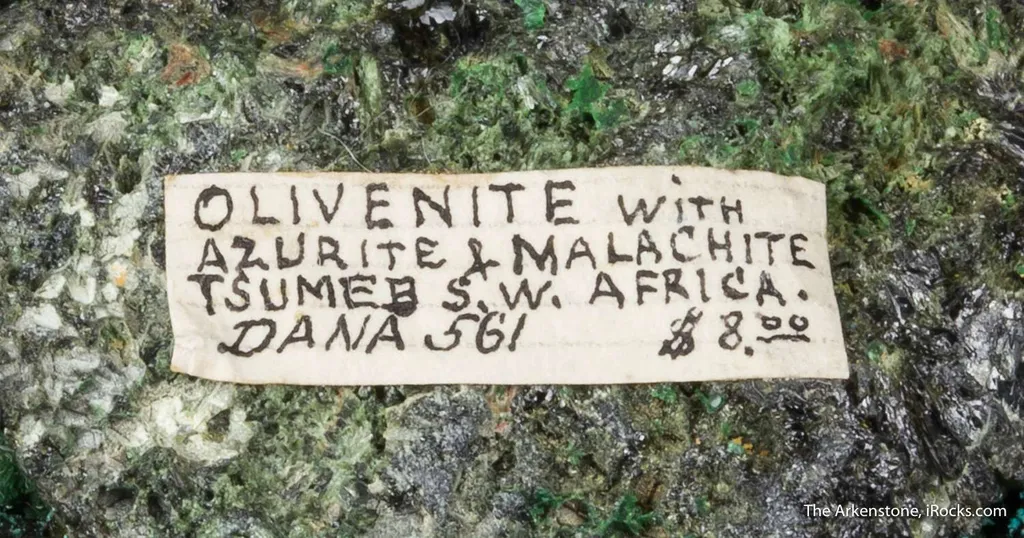 OLIVENITE WITH
AZURITE & MALACHITE
TSUMEB S.W. AFRICA.
DANA 561 $8.00
The Arkenstone, iRocks.com